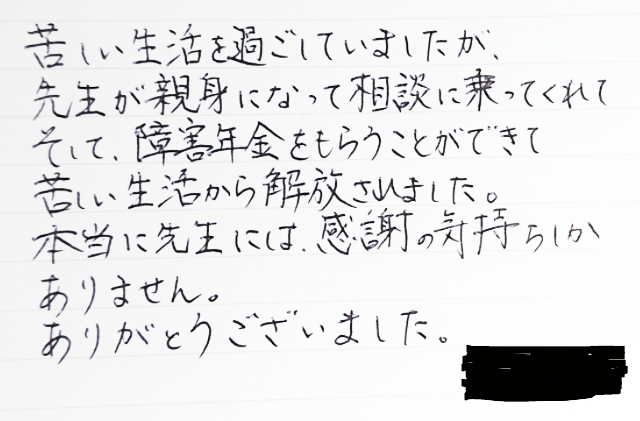 苦しい生活を過ごしていましたが、
先生が親身になって相談に乗ってくれて
そして、障害年金をもらうことができて
苦しい生活から解放されました。
本当に先生には、感謝の気持ちしか
ありません。
ありがとうございました。